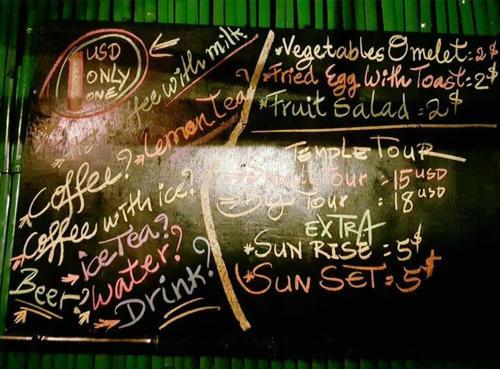 1 USD
ONLY
ONE
Coffee with milk
Lemon Tea?
Coffee?
Coffee with ice?
ice Tea?
Water?
Beer?
Drink?
*Vegetables Omelet = 2$
*Fried Egg With Toast = 2$
*Fruit Salad = 2$
TEMPLE TOUR
Small Tour = 15 USD
Big Tour = 18 USD
EXTRA
*SUN RISE = 5$
*SUN SET = 5$